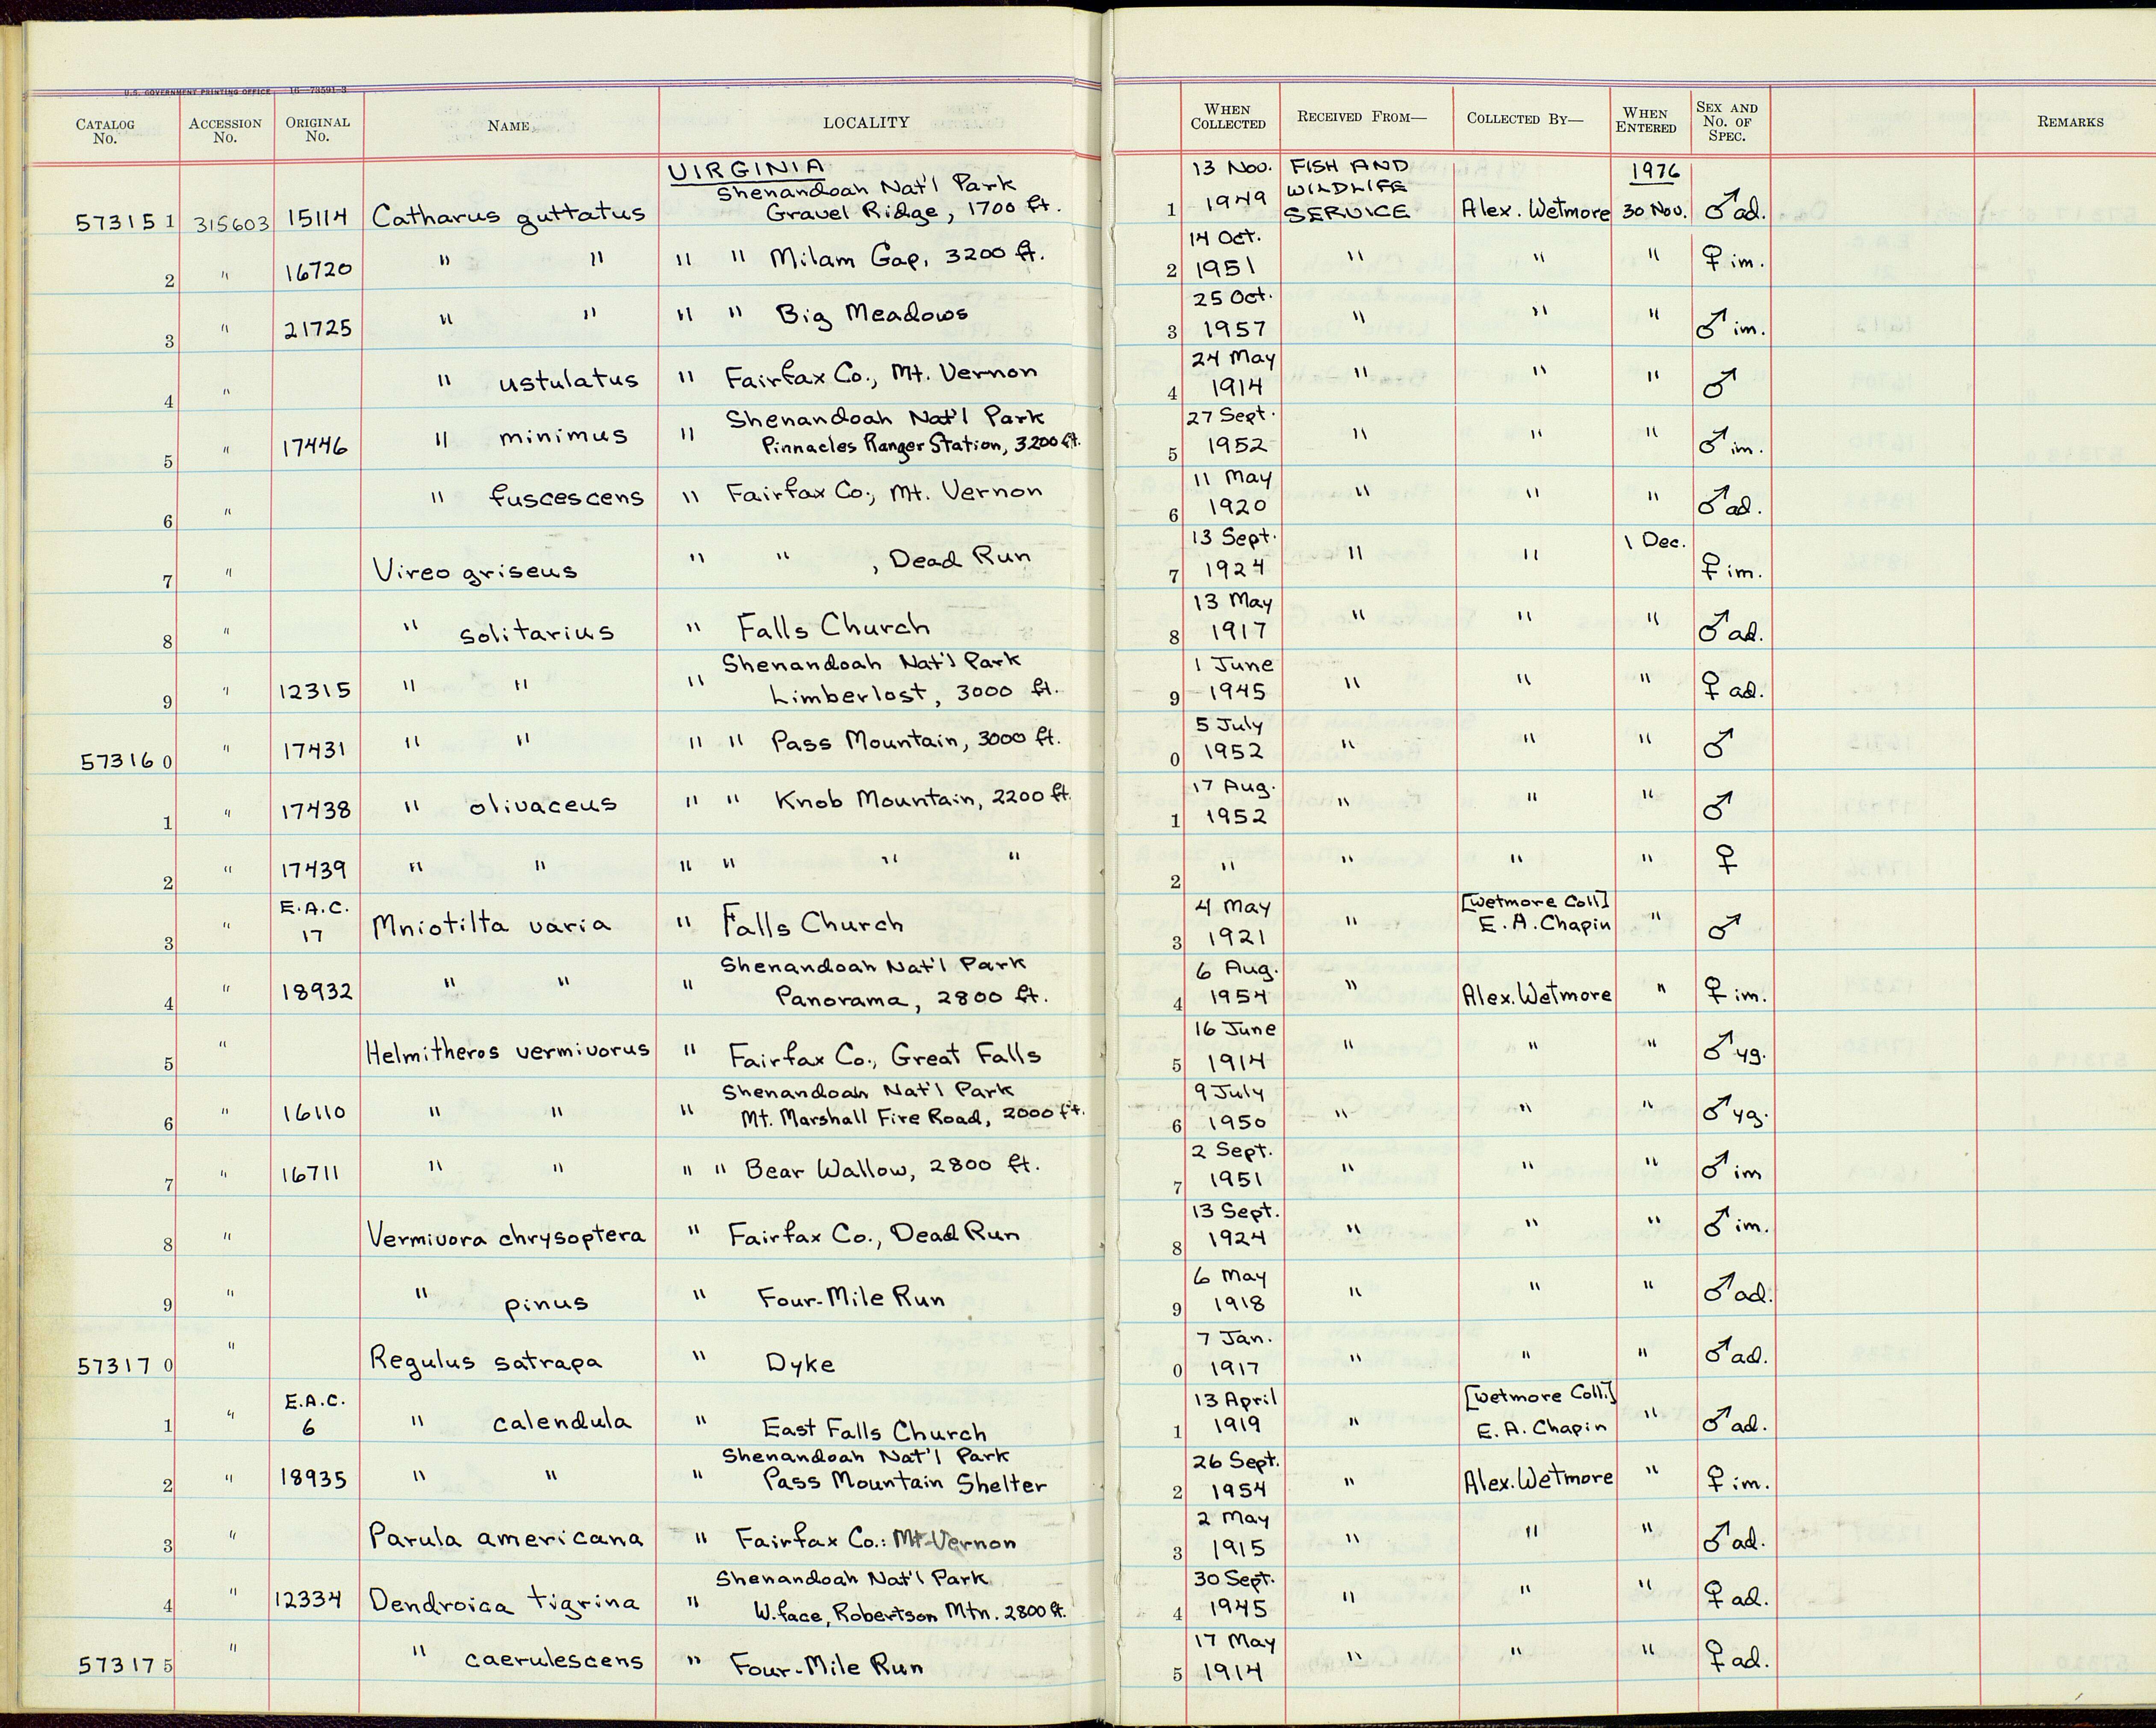 U.S. GOVERNMENT PRINTING OFFICE 16—73591-3
CATALOG No. ACCESSION No. ORIGINAL No. NAME LOCALITY WHEN COLLECTED RECEIVED FROM— COLLECTED BY— WHEN ENTERED SEX AND No. OF SPEC. REMARKS
VIRGINIA 13 Nov. FISH AND 1976
Shenandoah Nat'l Park WILDLIFE
573151 315603 15114 Catharus guttatus Gravel Ridge, 1700 ft. 1 1949 SERVICE Alex. Wetmore 30 Nov. ♂ ad.
14 Oct.
2 " 16720 " " " " Milam Gap, 3200 ft. 2 1951 " " " ♀ im.
25 Oct.
3 " 21725 " " " " Big Meadows 3 1957 " " " ♂ im.
24 May
4 " " ustulatus " Fairfax Co., Mt. Vernon 4 1914 " " " ♂
Shenandoah Nat'l Park 27 Sept.
5 " 17446 " minimus " Pinnacles Ranger Station, 3200 ft. 5 1952 " " " ♂ im.
11 May
6 " " fuscescens " Fairfax Co., Mt. Vernon 6 1920 " " " ♂ ad.
13 Sept. 1 Dec.
7 " Vireo griseus " " , Dead Run 7 1924 " " ♀ im.
13 May
8 " " solitarius " Falls Church 8 1917 " " " ♂ ad.
Shenandoah Nat'l Park 1 June
9 " 12315 " " " Limberlost, 3000 ft. 9 1945 " " " ♀ ad.
5 July
573160 " 17431 " " " " Pass Mountain, 3000 ft. 0 1952 " " " ♂
17 Aug.
1 " 17438 " olivaceus " " Knob Mountain, 2200 ft. 1 1952 " " " ♂
2 " 17439 " " " " " " 2 " " " " ♀
E.A.C. 4 May [Wetmore Coll]
3 " 17 Mniotilta varia " Falls Church 3 1921 " E. A. Chapin " ♂
Shenandoah Nat'l Park 6 Aug.
4 " 18932 " " " Panorama, 2800 ft. 4 1954 " Alex. Wetmore " ♀ im.
16 June
5 " Helmitheros vermivorus " Fairfax Co., Great Falls 5 1914 " " " ♂ yg.
Shenandoah Nat'l Park 9 July
6 " 16110 " " " Mt. Marshall Fire Road, 2000 ft. 6 1950 " " " ♂ yg.
2 Sept.
7 " 16711 " " " " Bear Wallow, 2800 ft. 7 1951 " " " ♂ im
13 Sept.
8 " Vermivora chrysoptera " Fairfax Co., Dead Run 8 1924 " " " ♂ im.
6 May
9 " " pinus " Four-Mile Run 9 1918 " " " ♂ ad.
7 Jan.
573170 " Regulus satrapa " Dyke 0 1917 " " " ♂ ad.
E.A.C. 13 April [Wetmore Coll.]
1 " 6 " calendula " East Falls Church 1 1919 " E. A. Chapin " ♂ ad.
Shenandoah Nat'l Park 26 Sept.
2 " 18935 " " " Pass Mountain Shelter 2 1954 " Alex. Wetmore " ♀ im.
2 May
3 " Parula americana " Fairfax Co.: Mt-Vernon 3 1915 " " " ♂ ad.
Shenandoah Nat'l Park 30 Sept.
4 " 12334 Dendroica tigrina " W. face, Robertson Mtn. 2800 ft. 4 1945 " " " ♀ ad.
17 May
573175 " " caerulescens " Four-Mile Run 5 1914 " " " ♀ ad.